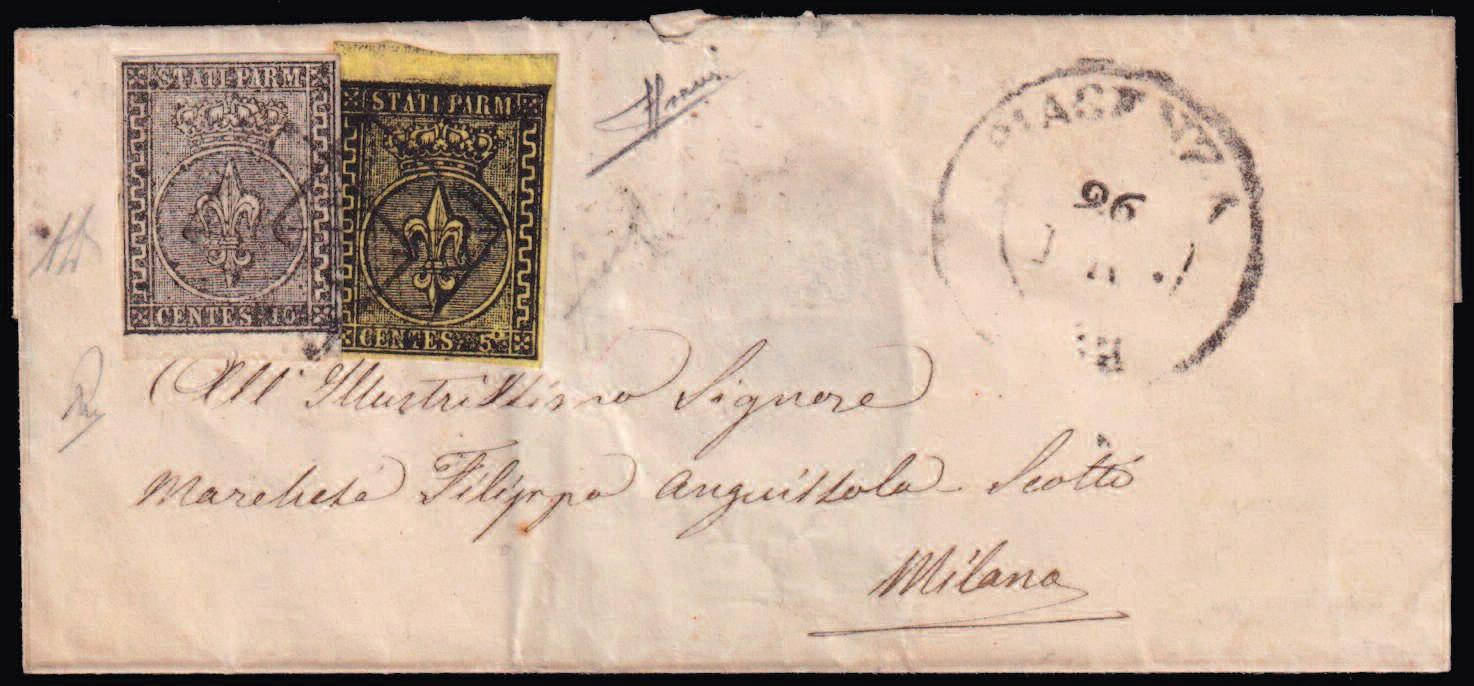 STATI PARM
CENTES. 10
STATI PARM
CENTES. 5
PIACENZA
26
All' Illustrissimo Signore
Marchese Filippo Anguissola Scotti
Milano